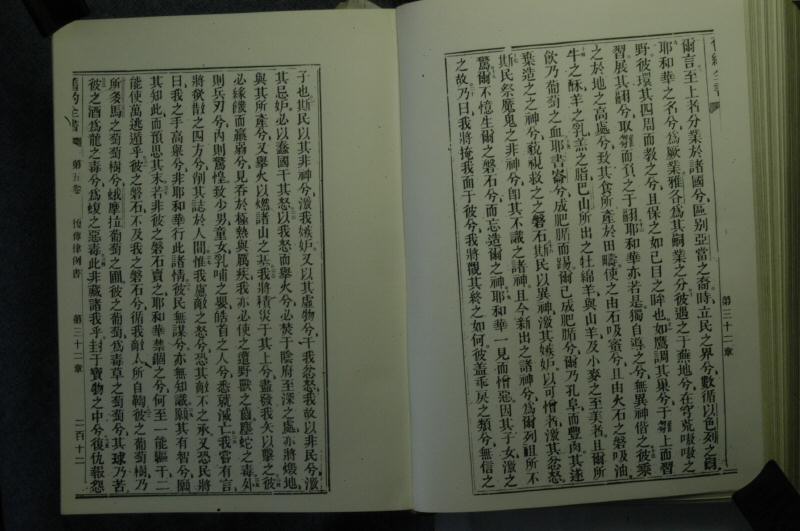 第三十二章
爾言至上者分業於諸國兮區別亞當之裔時立民之界兮數循以色列之
耶和華之名兮為厥業雅各為其嗣業之分彼遇之于蕪地兮在穹荒嗥嗥之
野彼環其四周而教之兮且保之如己目之眸也如鷹調其巢兮于雛上而習
習展其翮兮取雛而負之于翅耶和華亦若是獨自導之兮無異神偕之彼乘
之於地之高處兮致其食所產於田疇使之由石吸蜜兮且由火石之磐吸油
牛之酥羊之乳羔之脂巴山所出之牡綿羊與山羊及小麥之至美者且爾所
飲乃葡萄之血耶書崙兮成肥腯而踢爾已成肥腯兮爾乃孔阜而豐肉其遂
棄造之之神兮藐視救之之磐石斯民以異神激其嫉妒以可憎者激其忿怒
斯民祭魔鬼之非神兮卽其不識之諸神且今新出之諸神兮爲爾列祖所不
驚爾不憶生爾之磐石兮而忘造爾之神耶和華一見而憎惡因其子女激之
之故乃曰我將掩我面于彼兮我將觀其終之如何彼蓋乖戾之類兮無信之
子也斯民以其非神兮激我嫉妒又以其虛物兮干我忿怒我故以非民兮激
其忌妒必以蠢國干其怒以我怒而舉火兮必焚于陰府至深之處亦將燬地
與其所產兮又舉火以燃諸山之基我將積災于其上兮盡發我矢以擊之彼
必緣饑而羸弱兮見吞於極熱與厲疾我亦必使之遭野獸之齒塵蛇之毒外
則兵刃兮內則驚惶致少男童女乳哺之嬰皓首之人兮悉就滅亡我嘗有言
將欲散之四方兮削其誌於人間惟我慮敵之怒兮恐其敵不之承又恐民將
曰我之手高舉兮非耶和華行此諸情彼民無謀兮亦無知識願其有智兮願
其知此而預思其末若非彼之磐石賣之耶和華禁錮之兮何至一能驅千二
能使萬逃遁乎彼之磐石不及我之磐石兮循我敵人所自鞫彼之葡萄樹乃
所多馬之葡萄樹兮蛾摩拉葡萄之圃彼之葡萄爲毒草之葡萄兮其球乃苦
彼之酒爲龍之毒兮爲蝮之惡毒此非藏諸我乎封于寶物之中兮復仇報怨
舊約全書 第五卷 復傳律例書 第三十二章 二百十二